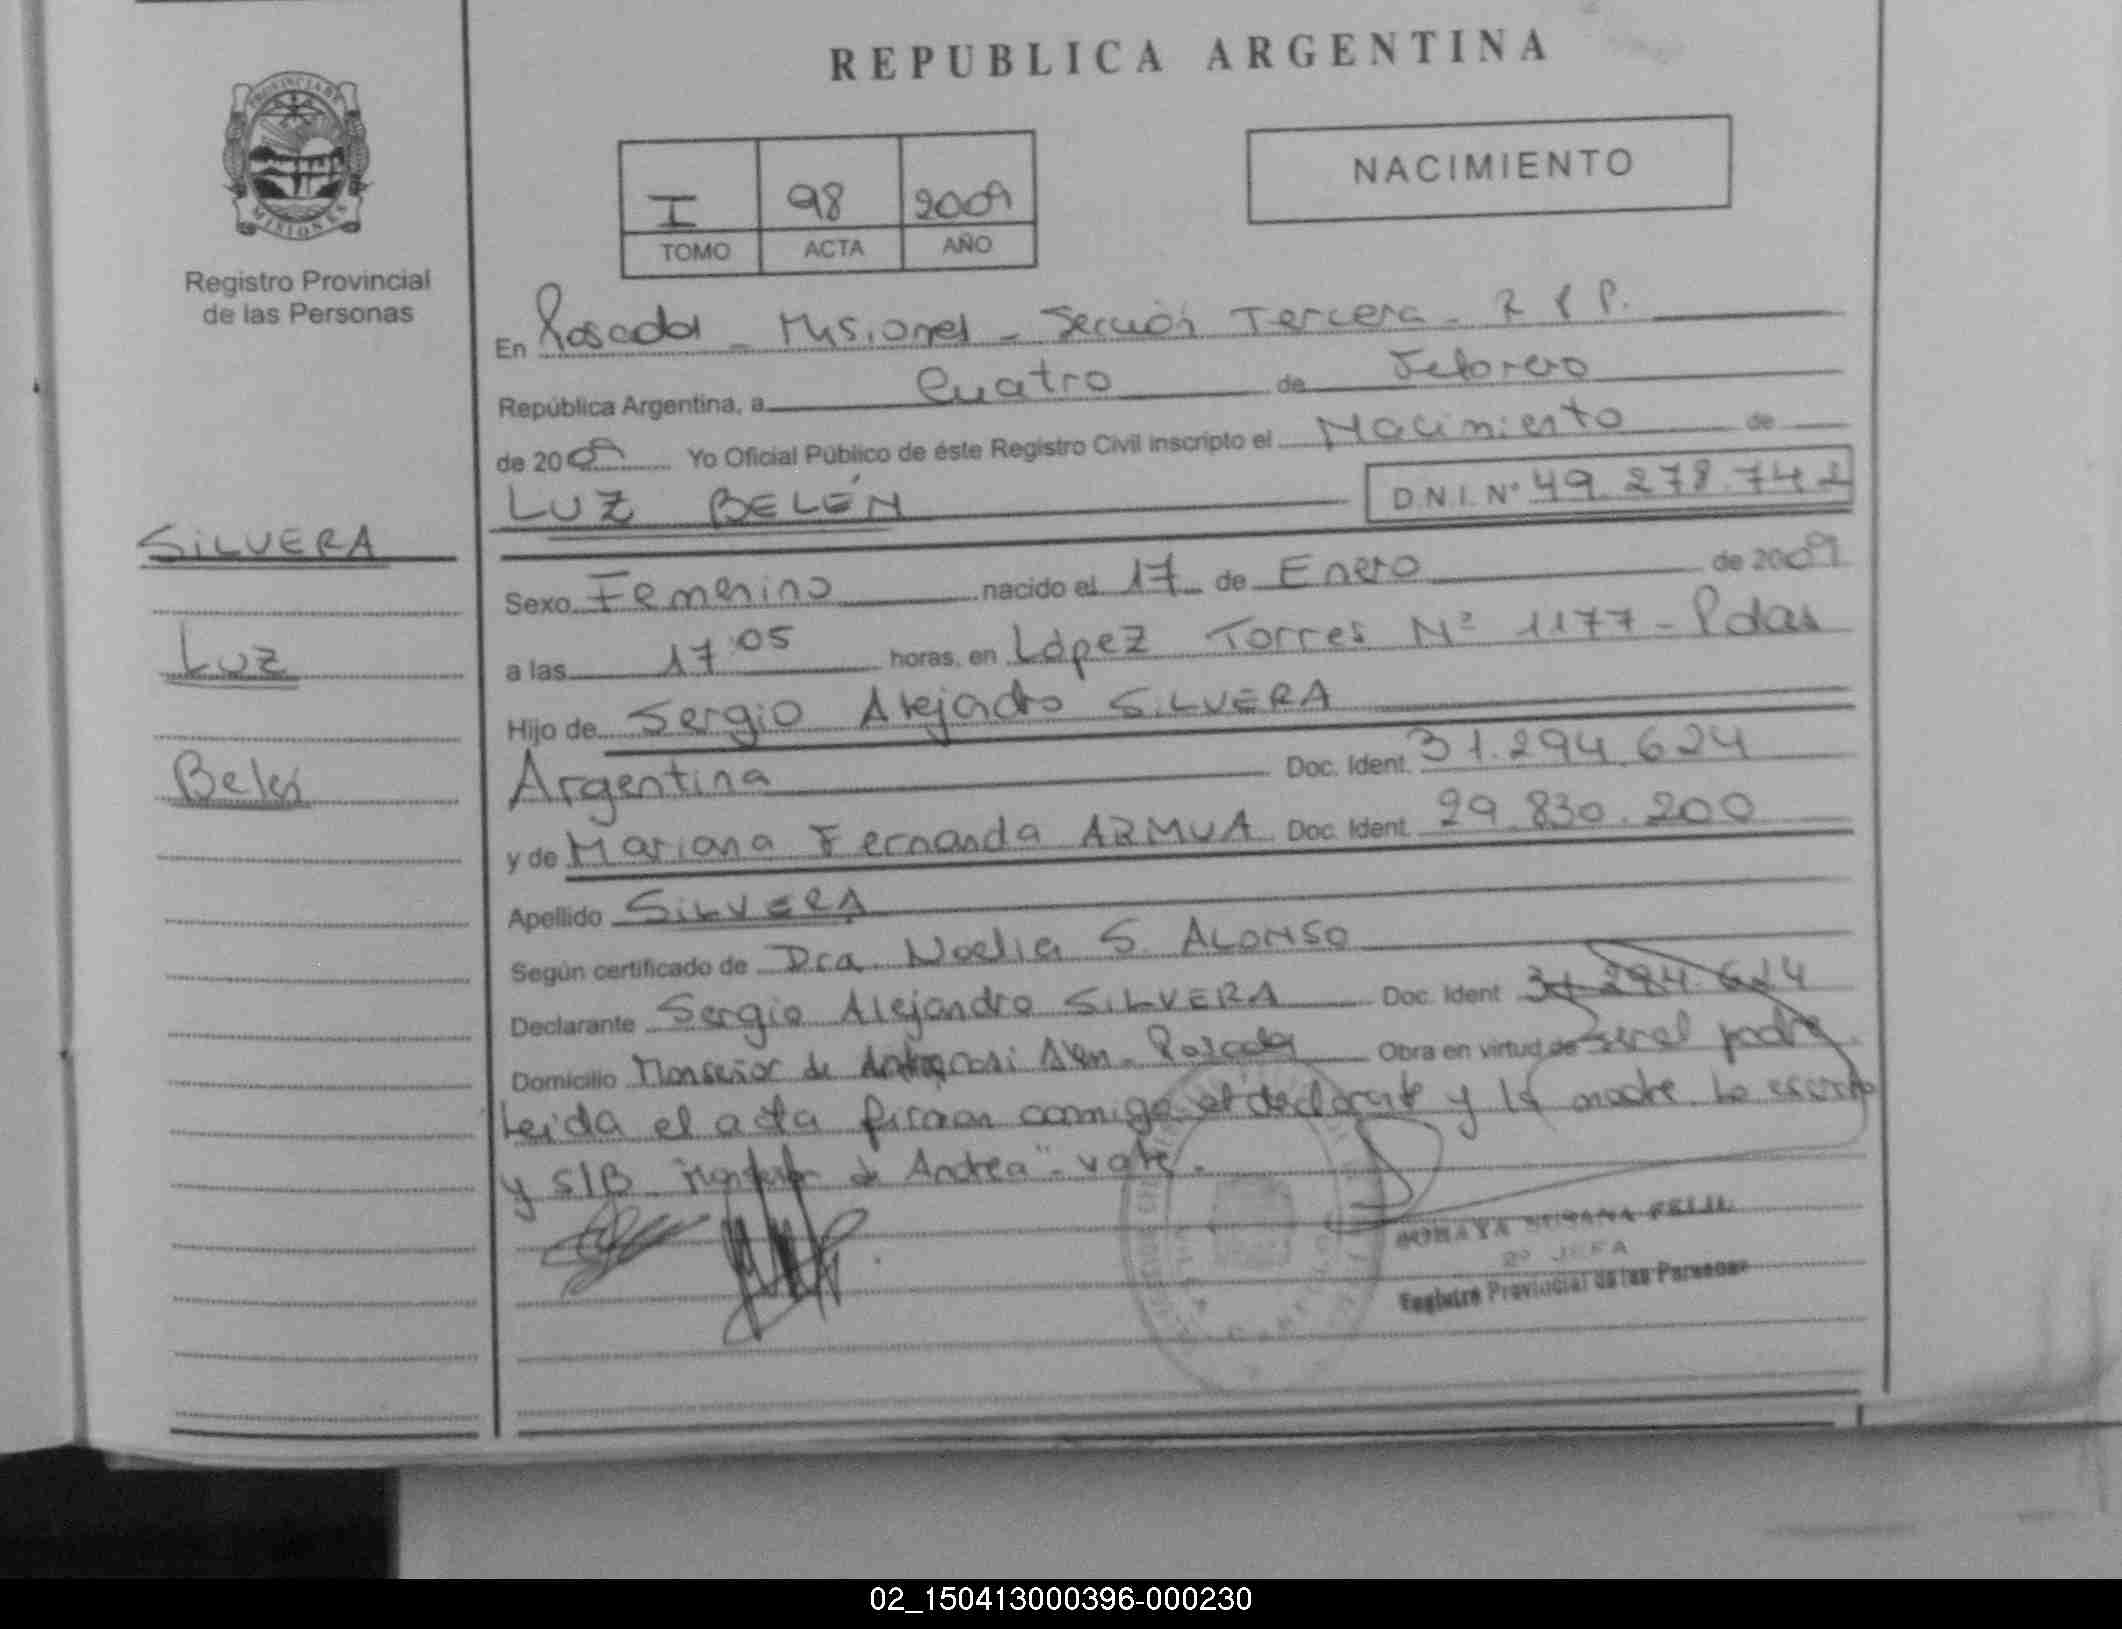 REPUBLICA ARGENTINA
PROVINCIA DE
MISIONES
Registro Provincial
de las Personas
NACIMIENTO
I 98 2009
TOMO ACTA AÑO
En Posadas - Misiones - Sección Tercera - R P P.
República Argentina, a Cuatro de Febrero
de 2009 Yo Oficial Público de éste Registro Civil inscripto el Nacimiento de
LUZ BELÉN D.N.I. Nº 49.278.742
SILVERA
Luz
Belén
Sexo Femenino nacido el 17 de Enero de 2009
a las 17:05 horas, en López Torres Nº 1177 - Pdas
Hijo de Sergio Alejadro SILVERA
Argentina Doc. Ident. 31.294.624
y de Mariana Fernanda ARMUA Doc. Ident. 29.830.200
Apellido SILVERA
Según certificado de Dra Noelia S. ALONSO
Declarante Sergio Alejandro SILVERA Doc. Ident 31.294.624
Domicilio Monseñor de Posadas Obra en virtud de ser el padre.
Leida el acta firman conmigo el declarante y la madre. Lo escrito
y S/B de Andrea" - vale.
SORAYA SUSANA
2º JEFA
Registro Provincial de las Personas
02_150413000396-000230